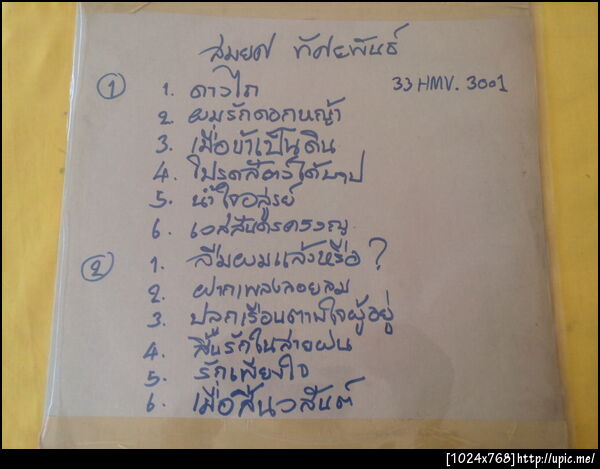 สมยศ ทัศนพันธ์
33 HMV. 3001
① 1. ดาวไถ
2. ผมรักดอกหญ้า
3. เมื่อข้าเป็นดิน
4. โปรดสัตว์ได้บาป
5. น้ำใจอสูรย์
6.
② 1. ลืมผมแล้วหรือ?
2. ฝากเพลงลอยลม
3. ปลูกเรือนตามใจผู้อยู่
4. สิ้นรักในสายฝน
5. รักเสียงใจ
6. เมื่อสิ้นวสันต์
[1024x768]http://upic.me/